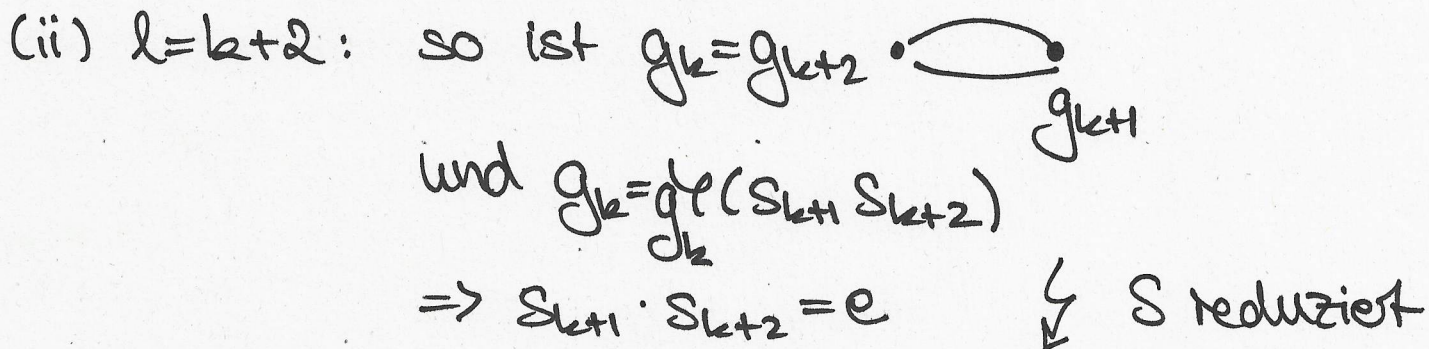 (ii) l=k+2: so ist g_k=g_{k+2}
g_{k+1}
und g_k=g_kφ(s_{k+1} s_{k+2})
=> s_{k+1} · s_{k+2} = e ↯ S reduziert